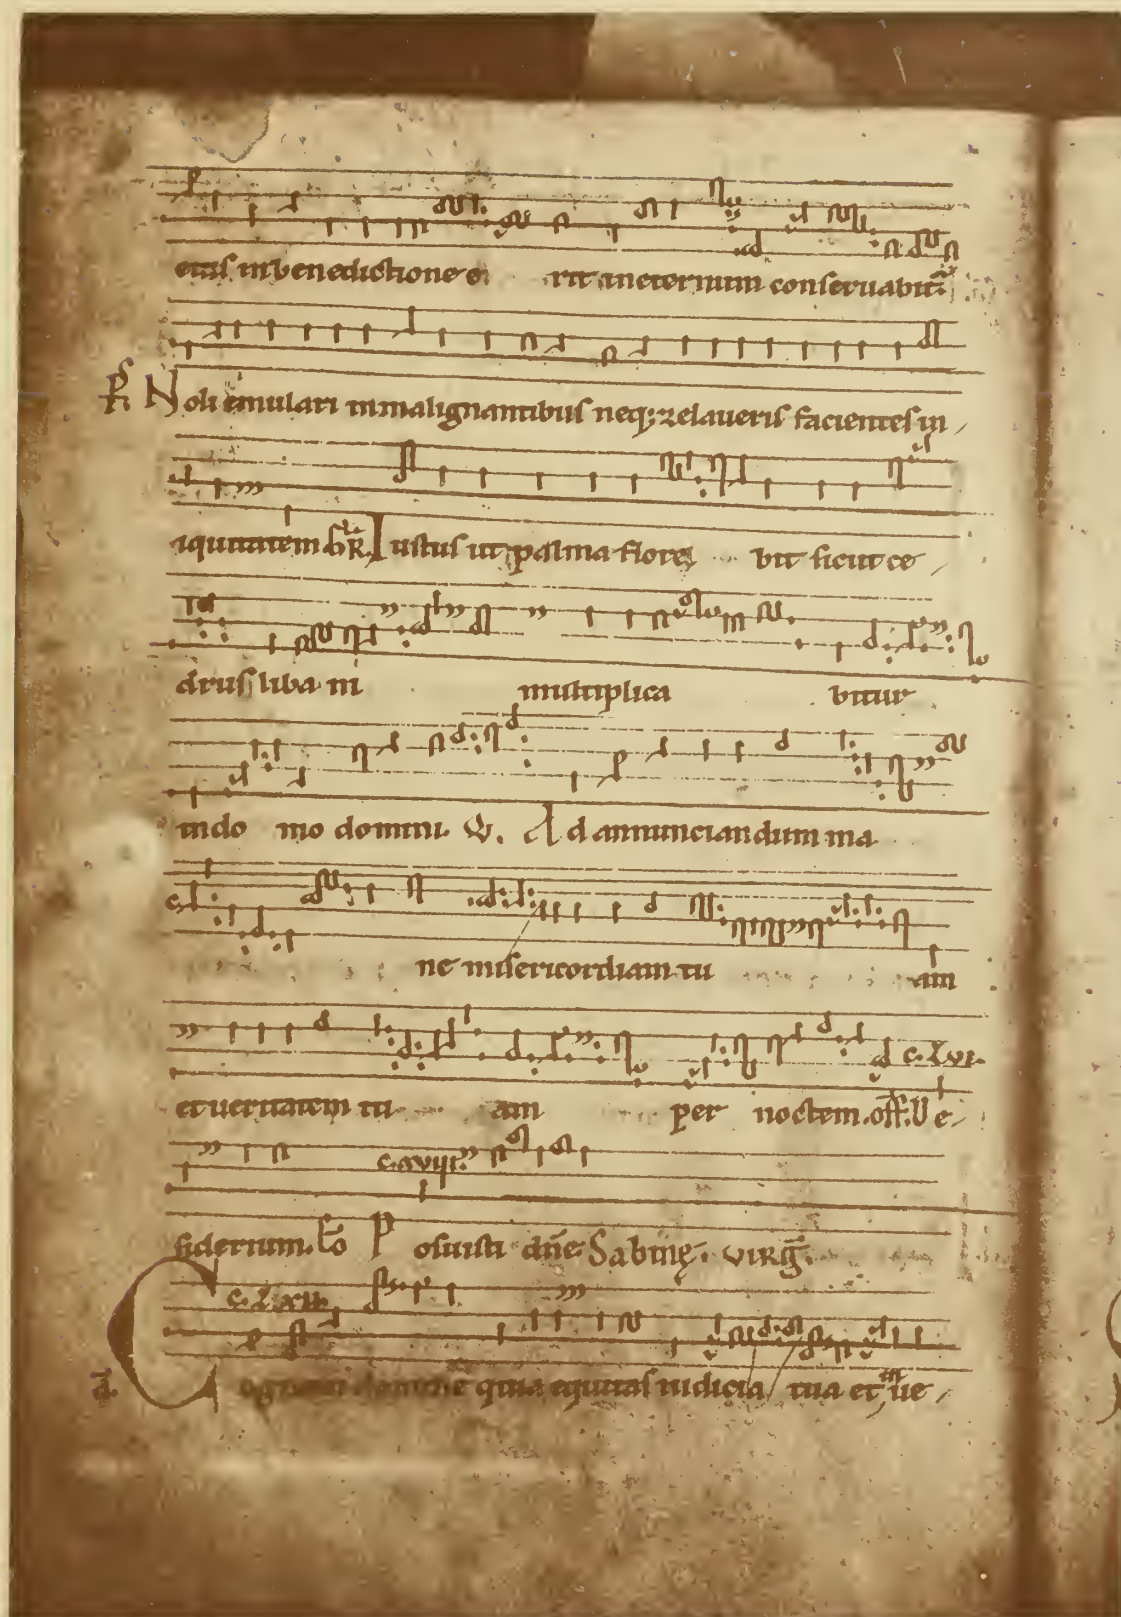 eius in benedictione e rit in eternum conseruabit᷑
Ps. Noli emulari in malignantibus neq; zelaueris facientes in
iquitatem. Gr̃. Iustus ut palma flore bit sicut ce
drus liba ni multiplica bitur
in do mo domini. V. Ad annunciandum ma
ne misericordiam tu am
et ueritatem tu am per noctem. off. De c. Lxvi.
siderium. Co Posuisti dñe. Sabinę. VIRG̃. c. xviii.
c. Lxxii.
a. Cognoui domine quia equitas iudicia tua et in ue